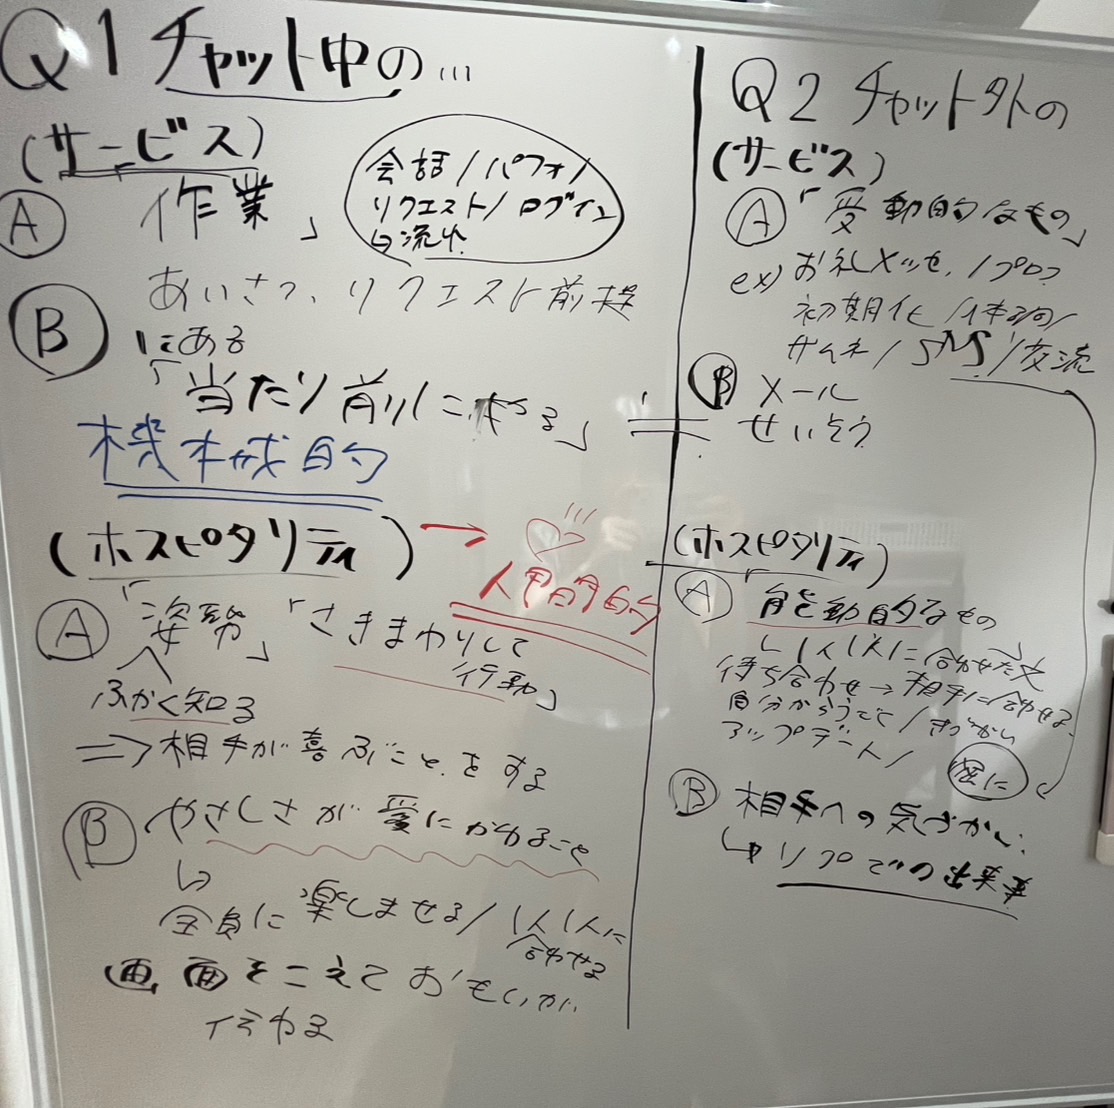 Q1 チャット中の...
(サービス)
Ⓐ 作業」
会話/パフォ/
リクエスト/ログイン
↳流れ
Ⓑ あいさつ、リクエスト前提
にある
「当たり前にやる」
機械的
(ホスピタリティ) → ♡
人間的
Ⓐ 「姿勢」「さきまわりして
行動」
ふかく知る
⇒相手が喜ぶことをする
Ⓑ やさしさが愛にかわること
↳
全員に楽しませる/1人1人に
合わせる
画面をこえておもいが
伝わる
Q2 チャット外の
(サービス)
Ⓐ「受動的なもの」
ex) お礼メッセ、/プロフ
初期化/待伺/
サムネ/SMS/交流
Ⓑ メール
せいそう
(ホスピタリティ)
Ⓐ「能動的なもの」
1人1人に合わせた文
待ち合わせ→相手に合わせる、
自分からうごく/きづかい
アップデート/
Ⓑ 相手への気づかい、
↳リプでの出来事